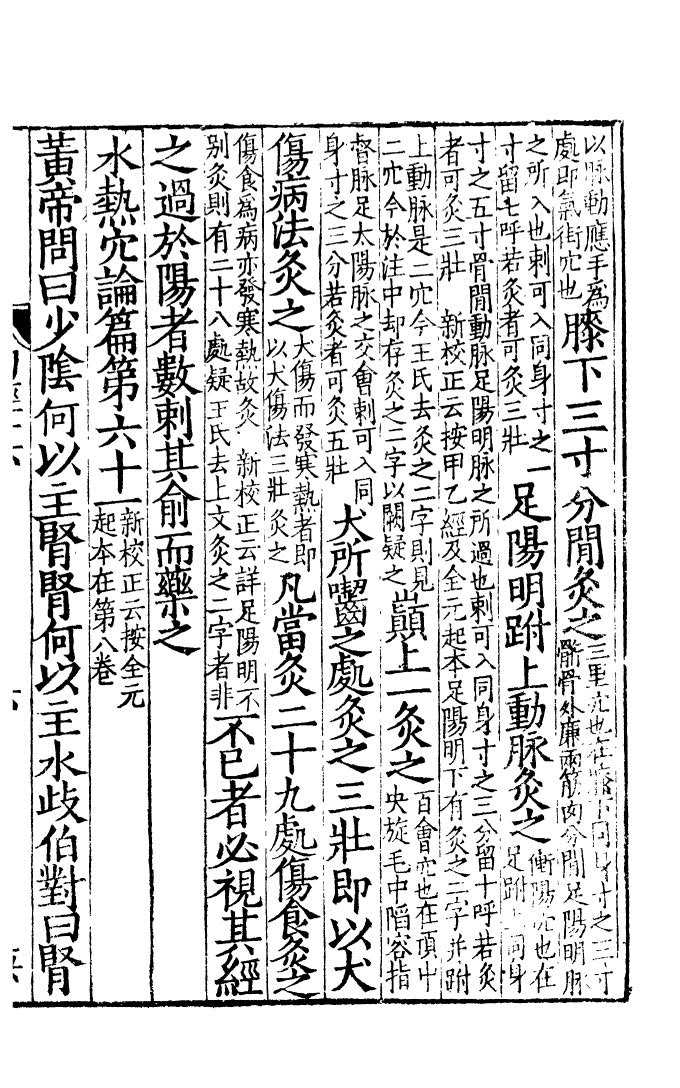 以脉動應手爲
處即氣街穴也
膝下三寸分閒灸之
三里穴也在膝下同身寸之三寸
䯒骨外廉兩筋肉分閒足陽明脉
之所入也刺可入同身寸之一
寸留七呼若灸者可灸三壯
足陽明跗上動脉灸之
衝陽穴也在
足跗上同身
寸之五寸骨閒動脉足陽明脉之所過也刺可入同身寸之三分留十呼若灸
者可灸三壯 新校正云按甲乙經及全元起本足陽明下有灸之二字并跗
上動脉是二穴今王氏去灸之二字則見
二穴今於注中却存灸之二字以闕疑之
巓上一灸之
百會穴也在頂中
央旋毛中陷容指
督脉足太陽脉之交會刺可入同
身寸之三分若灸者可灸五壯
犬所嚙之處灸之三壯即以犬
傷病法灸之
犬傷而發寒熱者即
以犬傷法三壯灸之
凡當灸二十九處傷食灸之
傷食爲病亦發寒熱故灸 新校正云詳足陽明不
别灸則有二十八處疑王氏去上文灸之二字者非
不已者必視其經
之過於陽者數刺其俞而藥之
水熱穴論篇第六十一
新校正云按全元
起本在第八卷
黃帝問曰少陰何以主腎腎何以主水歧伯對曰腎